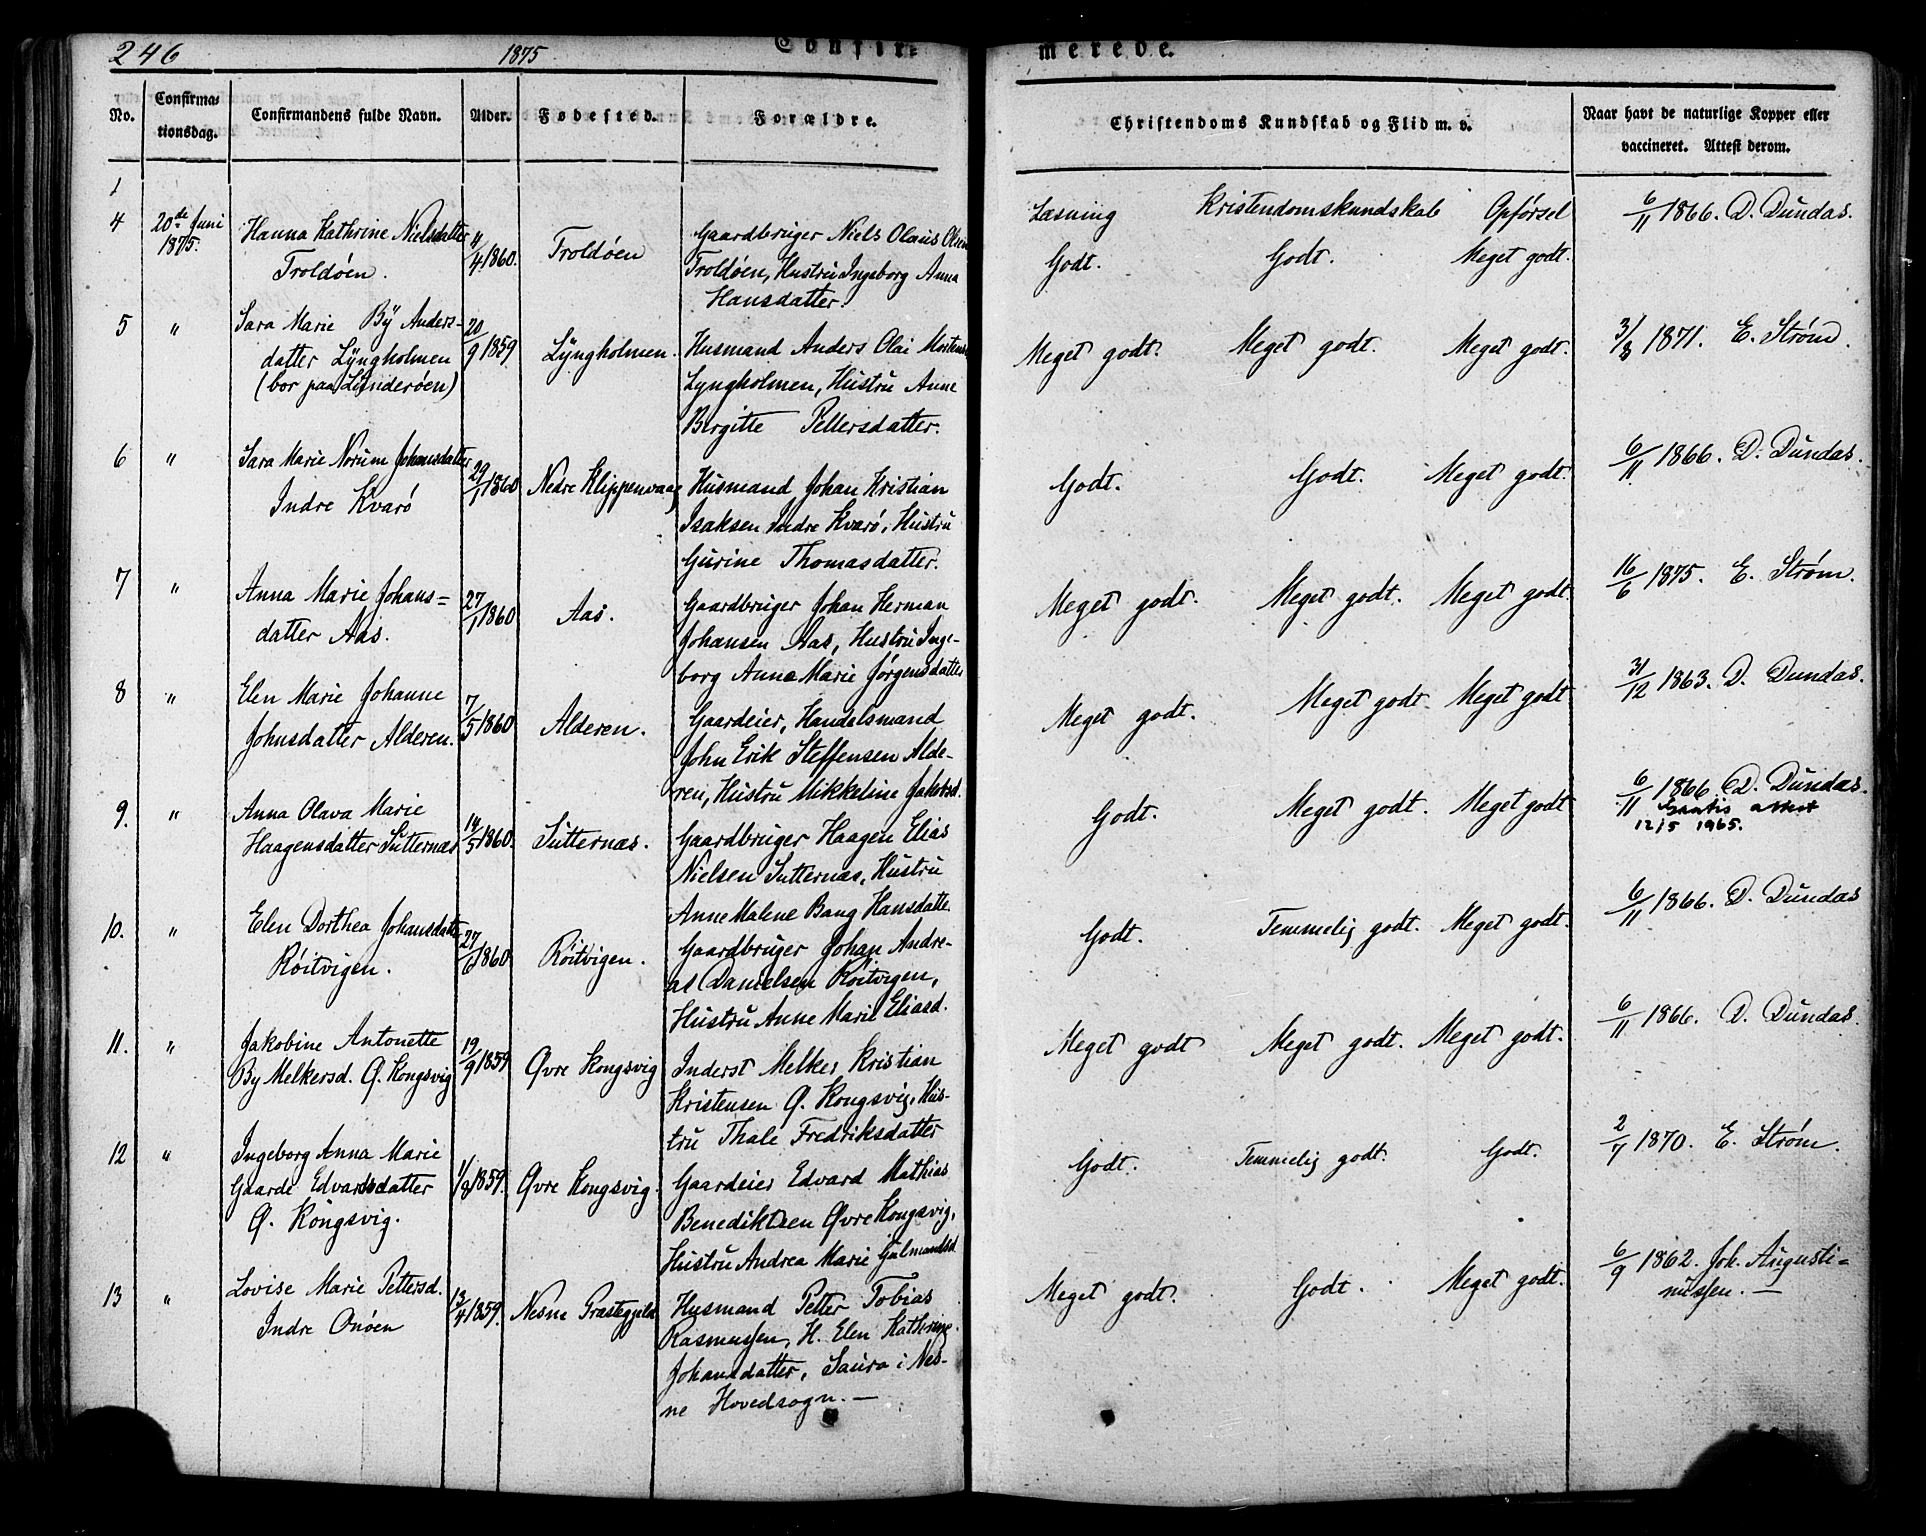 246
1875
Confir=
merede.
No.
Confirma=
tionsdag.
Confirmandens fulde Navn.
Alder.
Fødested.
Forældre.
Christendoms Kundskab og Flid m. v.
Naar havt de naturlige Kopper eller
vaccineret. Attest derom.
Læsning Kristendomskundskab Opførsel
4 20de Juni
1875.
Hanna Kathrine Nielsdatter
Troldøen.
11/4 1860.
Troldøen
Gaardbruger Niels Olaus Olsen
Troldøen, Hustru Ingeborg Anna
Hansdatter.
Godt. Godt. Meget godt.
6/11 1866. D. Dundas.
5 "
Sara Marie By Anders-
datter Lyngholmen
(bor paa Lunderøen)
20/9 1859
Lyngholmen.
Husmand Anders Olai Mortens.
Lyngholmen, Hustru Anne
Birgitte Pettersdatter.
Meget godt. Meget godt. Meget godt.
3/8 1871. E. Strøm.
6 "
Sara Marie Norum Johansdatter
Indre Kvarø
29/1 1860
Nedre Klippenvaag
Husmand Johan Kristian
Isaksen Indre Kvarø, Hustru
Gurine Thomasdatter.
Godt. Godt. Meget godt.
6/11 1866. D. Dundas.
7 "
Anna Marie Johans=
datter Aas.
27/1 1860
Aas.
Gaardbruger Johan Herman
Johansen Aas, Hustru Inge-
borg Anna Marie Jørgensdatter
Meget godt. Meget godt. Meget godt
16/6 1875. E. Strøm.
8 "
Elen Marie Johanne
Johnsdatter Alderen.
7/5 1860
Alderen.
Gaardeier, Handelsmand
John Erik Steffensen Alde-
ren, Hustru Mikkeline Jakobsd.
Meget godt. Meget godt. Meget godt
31/12 1863. D. Dundas.
9. "
Anna Olava Marie
Haagensdatter Sutternæs
14/5 1860.
Sutternæs.
Gaardbruger Haagen Elias
Nielsen Sutternæs, Hustru
Anne Malene Bang Hansdatte.
Godt. Meget godt. Meget godt
6/11 1866. D. Dundas.
Gratis attest
12/5 1965.
10. "
Elen Dorthea Johansdatter
Røitvigen.
27/6 1860
Røitvigen.
Gaardbruger Johan Andre-
as Danielsen Røitvigen,
Hustru Anne Marie Eliasd.
Godt. Temmelig godt. Meget godt.
6/11 1866. D. Dundas
11. "
Jakobine Antonette
By Melkersd. Ø. Kongsvig
19/9 1859
Øvre Kongsvig
Inderst Melker Kristian
Kristensen Ø. Kongsvig, Hus-
tru Thale Fredriksdatter
Meget godt Meget godt. Meget godt.
6/11 1866. D. Dundas.
12 "
Ingeborg Anna Marie
Gaarde Edvardsdatter
Ø. Kongsvig.
1/8 1859.
Øvre Kongsvig.
Gaardeier Edvard Mathias
Benediktsen Øvre Kongsvig,
Hustru Andrea Marie Gulmandsd.
Godt. Temmelig godt. Godt.
2/7 1870. E. Strøm.
13 "
Lovise Marie Pettersd.
Indre Onøen
13/4 1859.
Nesne Præstegjeld
Husmand Petter Tobias
Rasmussen, H. Elen Kathrine
Johansdatter, Saura i Nes-
ne Hovedsogn. —
Meget godt. Godt. Meget godt.
6/9 1862. Joh. Augusti=
nussen. —